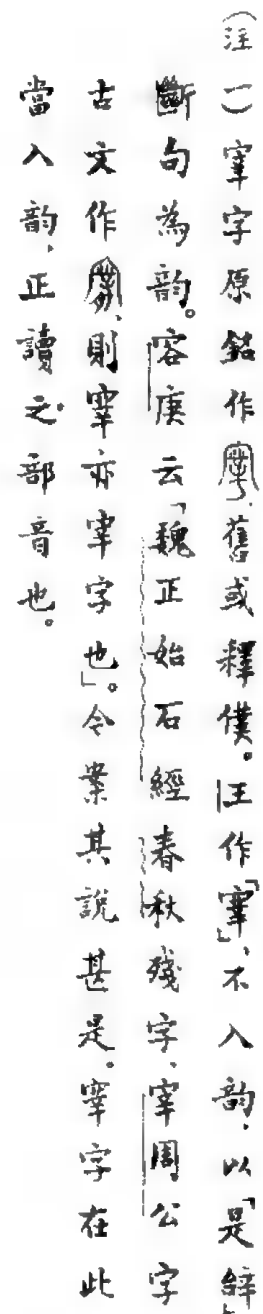 (注一)宰字原銘作，舊或釋僕。王作「宰」，不入韵，以「是辝」
斷句為韵。容庚云「魏正始石經春秋殘字，宰周公字
古文作，則宰亦宰字也」。今案其說甚是。宰字在此
當入韵，正讀之部音也。